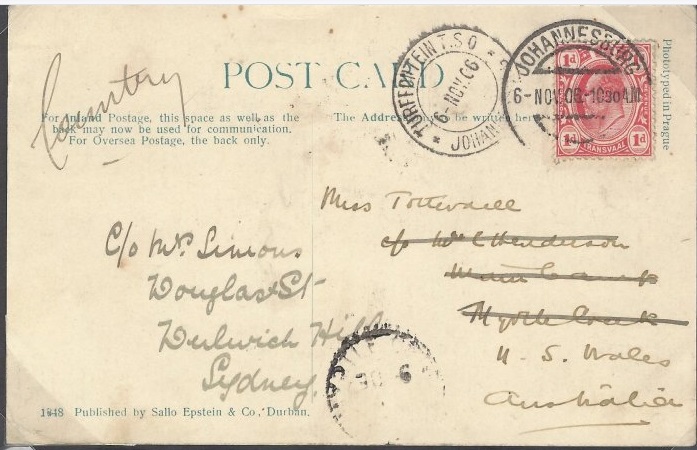 Country
POST CARD
For Inland Postage, this space as well as the
back may now be used for communication.
For Oversea Postage, the back only.
The Address be written here
TURFFONTEIN T.S.O
6-NOV.06
JOHAN
JOHANNESBURG
6-NOV 06·1030AM
1d
1d 1d
TRANSVAAL
Phototyped in Prague
Miss
c/o Mr C Henderson
Camp
Myrtle Creek
N. S. Wales
Australia
C/o Mrs Simons
Douglas St
Dulwich Hill
Sydney
6
1848 Published by Sallo Epstein & Co, Durban.